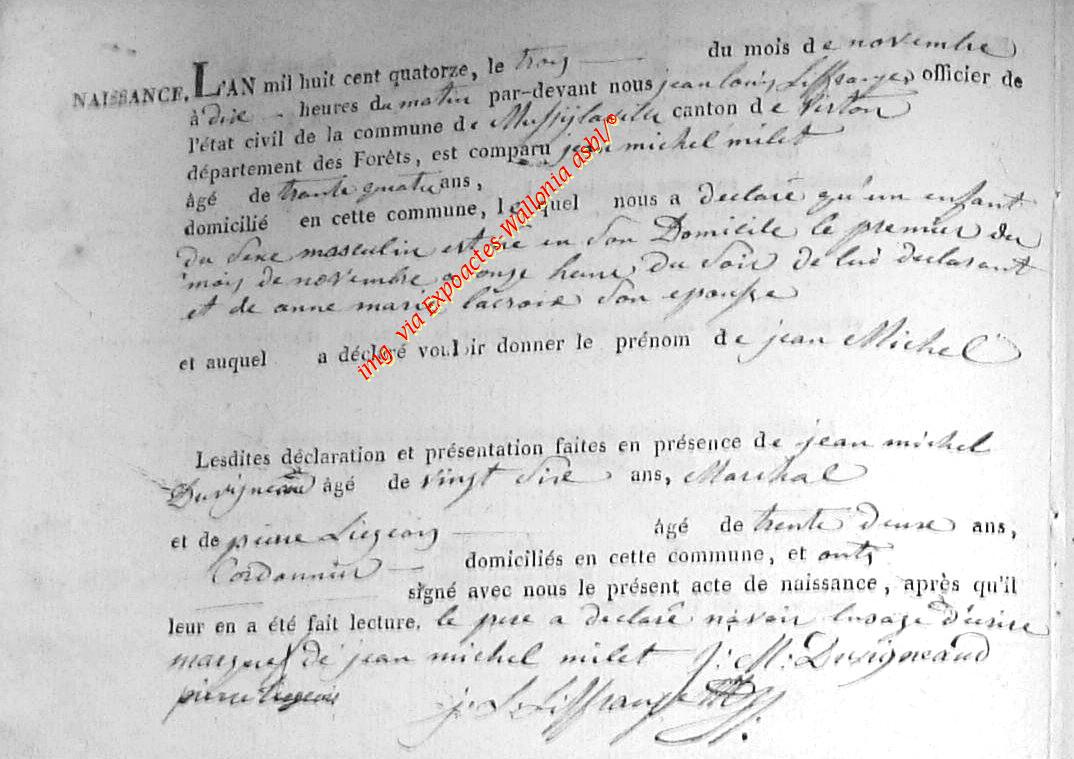 NAISSANCE. L'AN mil huit cent quatorze, le trois du mois de novembre
à dix heures du matin par-devant nous jean louis Liffrange, officier de
l'état civil de la commune de Mussy canton de Virton
département des Forêts, est comparu jean michel milet
âgé de trante quatre ans,
domicilié en cette commune, lequel nous a declaré qu'un enfant
du sexe masculin est né en son Domicile le premier du
mois de novembre a onze heure du soir de lui declarant
et de anne marie lacroix son epouse
et auquel a déclaré vouloir donner le prénom de jean Michel
Lesdites déclaration et présentation faites en présence de jean michel
Duvigneaud âgé de vingt sixe ans, Marchal
et de pierre Liegeois âgé de trente deuxe ans,
Cordonnier domiciliés en cette commune, et onts
signé avec nous le présent acte de naissance, après qu'il
leur en a été fait lecture. le pere a declaré navoir lusage d'ecrire
marque de jean michel milet J: M: Duvigneaud
pierre liegeois j: L: Liffrange
img. via Expoactes-Wallonia asbl/®